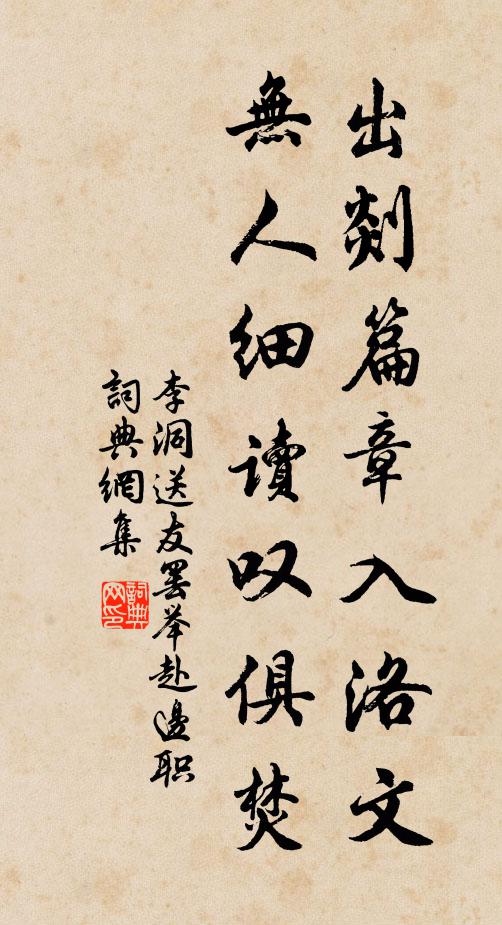 出剡篇章入洛文
無人细讀叹俱焚
李洞送友罢举赴邊职
詞典網集
詞典网印